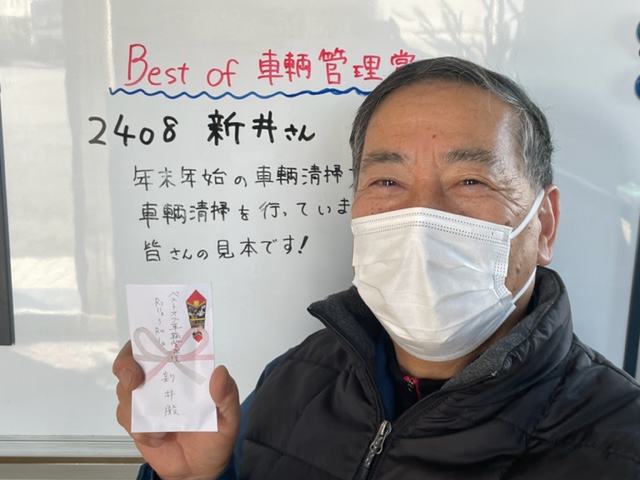 Best of 車輌管理賞
2408 新井さん
年末年始の車輌清掃
車輌清掃を行っていま
皆さんの見本です!
ベストオブ車輌管理賞
新井殿